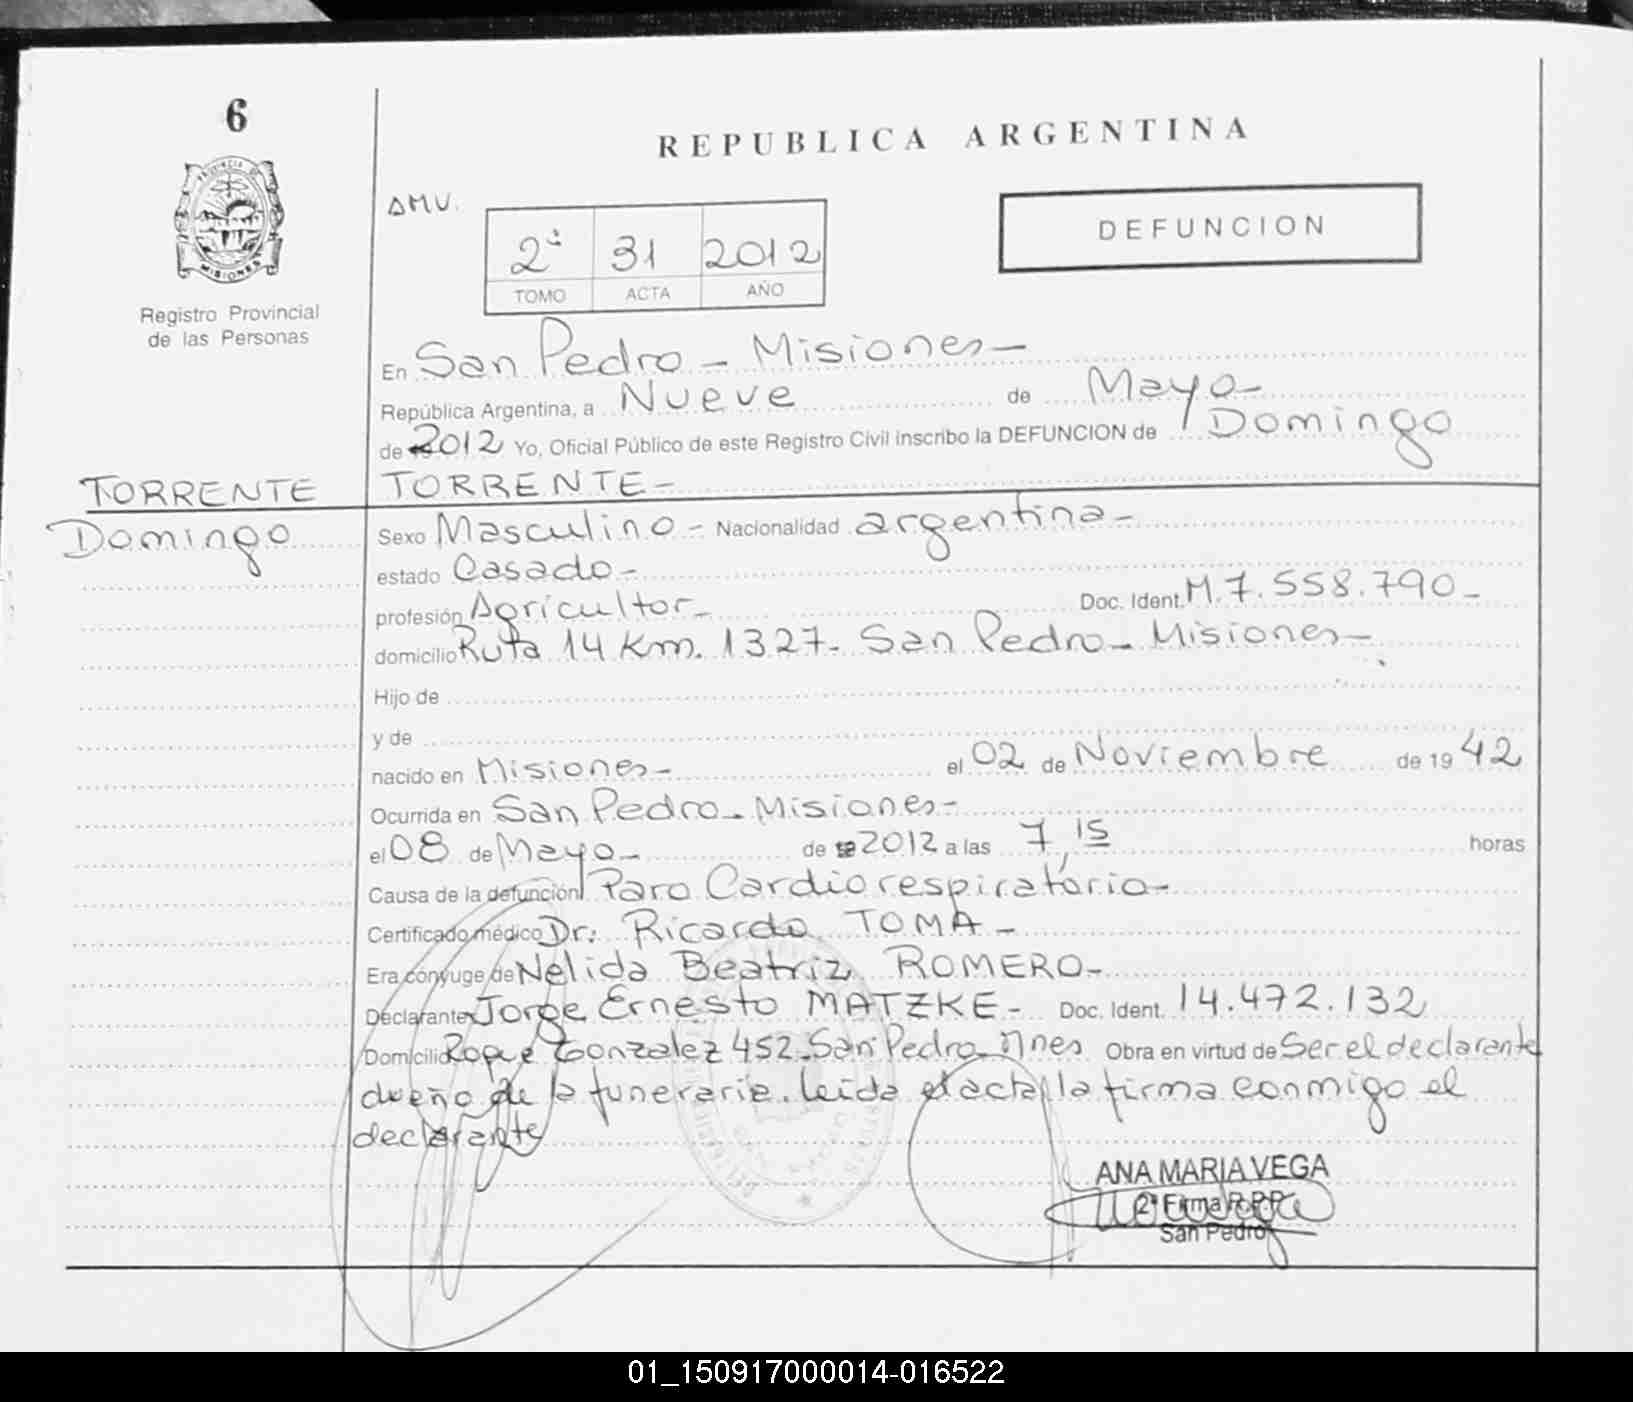 6
REPUBLICA ARGENTINA
AMV.
2ª 31 2012
TOMO ACTA AÑO
DEFUNCION
PROVINCIA DE
MISIONES
Registro Provincial
de las Personas
En San Pedro - Misiones -
República Argentina, a Nueve de Mayo -
de 2012 Yo, Oficial Público de este Registro Civil inscribo la DEFUNCION de Domingo
TORRENTE -
TORRENTE
Domingo
Sexo Masculino - Nacionalidad argentina -
estado Casado -
profesión Agricultor - Doc. Ident. M. 7.558.790 -
domicilio Ruta 14 Km. 1327 - San Pedro - Misiones -
Hijo de
y de
nacido en Misiones - el 02 de Noviembre de 1942
Ocurrida en San Pedro - Misiones -
el 08 de Mayo - de 2012 a las 7,15 horas
Causa de la defunción Paro Cardiorespiratorio -
Certificado médico Dr: Ricardo TOMA -
Era cónyuge de Nelida Beatriz ROMERO -
Declarante Jorge Ernesto MATZKE - Doc. Ident. 14.472.132
Domicilio Roque Gonzalez 452 - San Pedro - Mnes Obra en virtud de Ser el declarante
dueño de la funeraria. Leida el acta, la firma conmigo el
declarante
ANA MARIA VEGA
2ª Firma R.P.P.
San Pedro
01_150917000014-016522